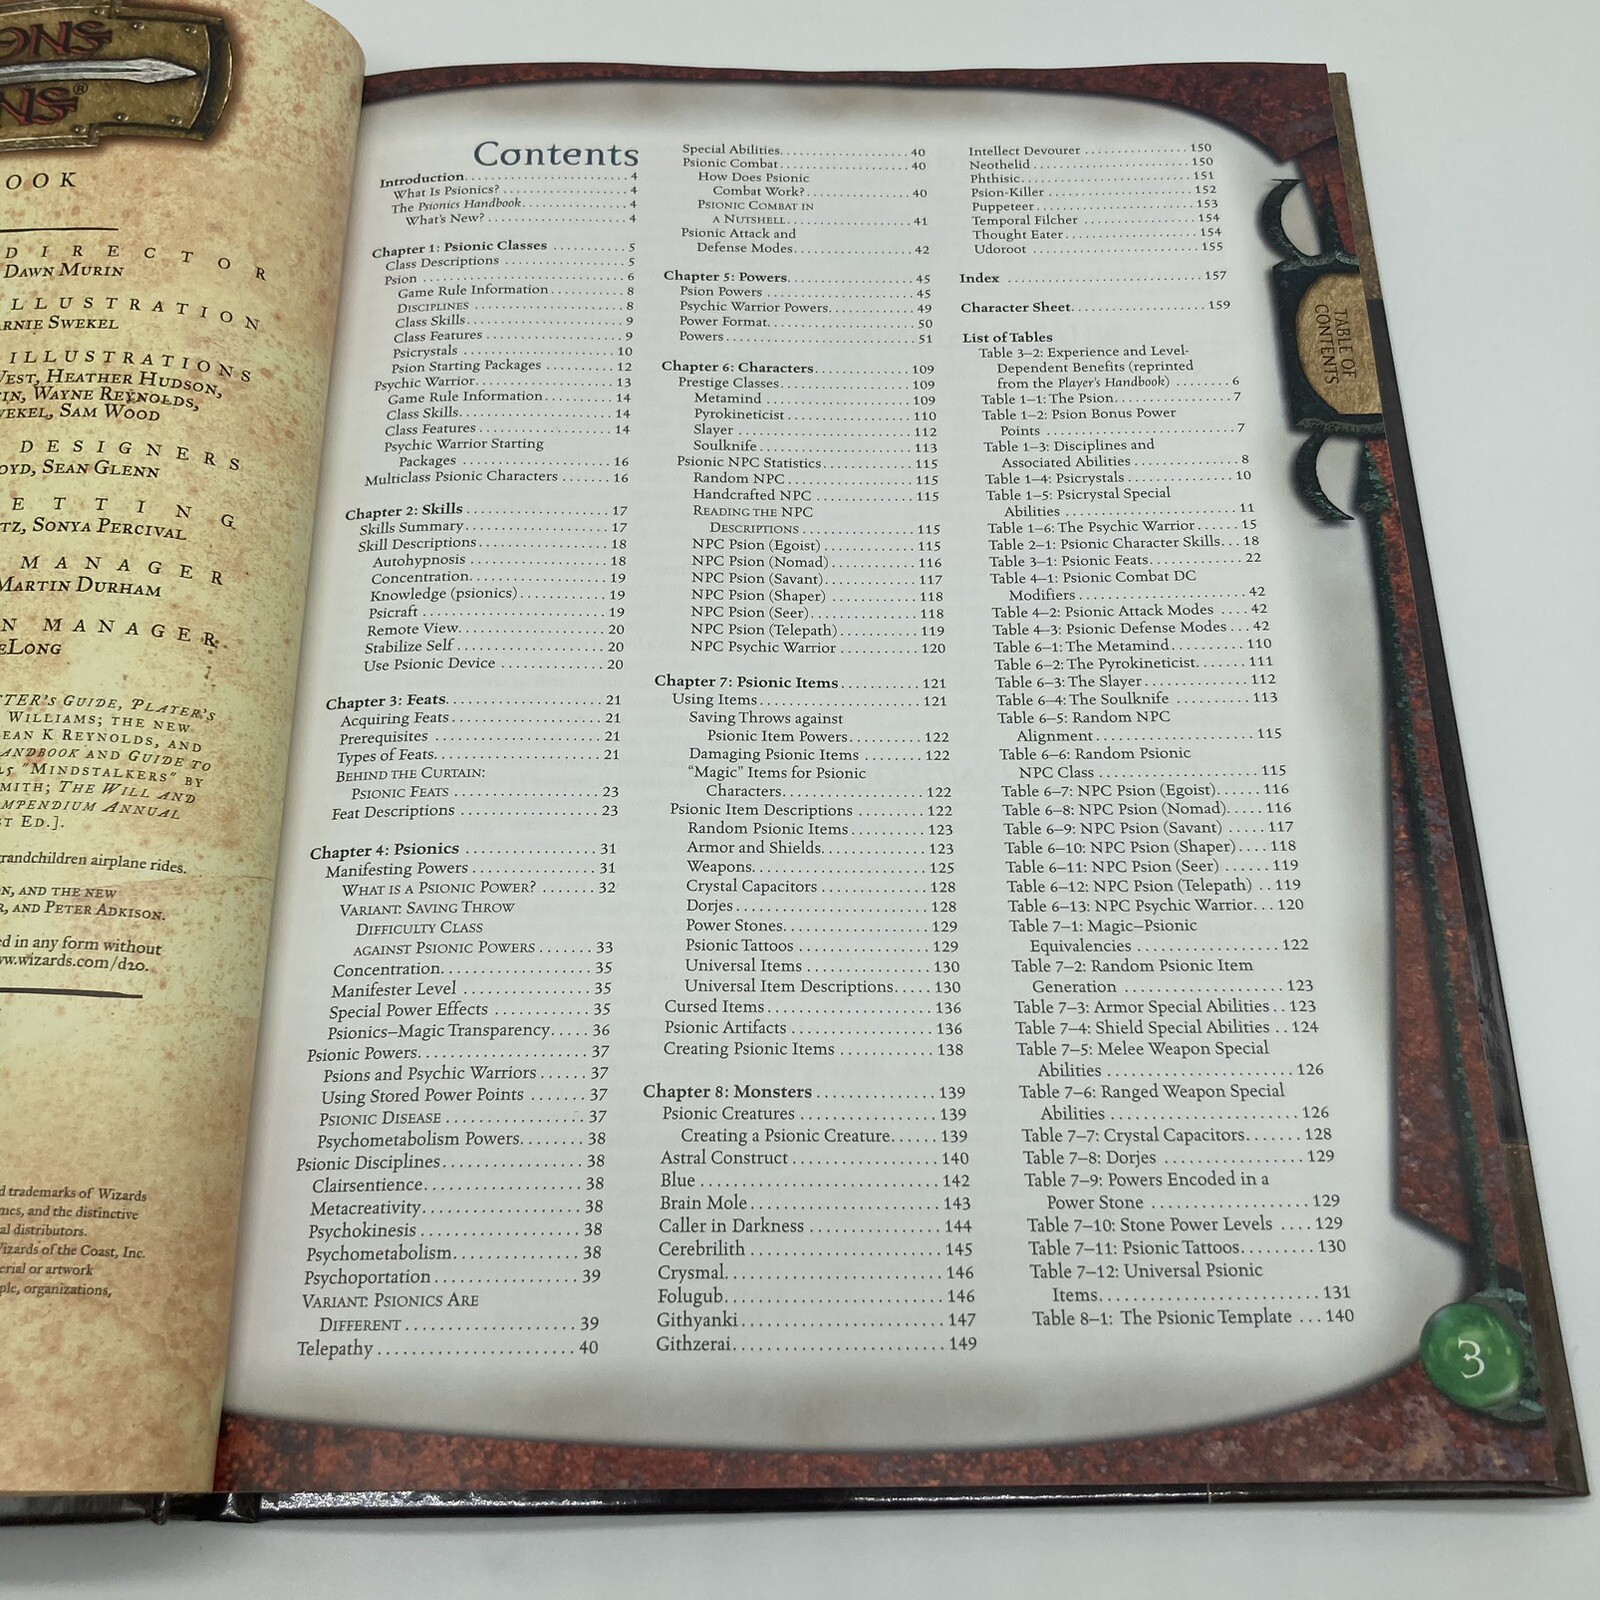 OOK
DIRECTOR
DAWN MURIN
ILLUSTRATION
ARNIE SWEKEL
ILLUSTRATIONS
WEST, HEATHER HUDSON,
WAYNE REYNOLDS,
SWEKEL, SAM WOOD
DESIGNERS
SEAN GLENN
SONYA PERCIVAL
MANAGER
MARTIN DURHAM
MANAGER
DELONG
GUIDE, PLAYER'S
WILLIAMS; THE NEW
SEAN K REYNOLDS, AND
HANDBOOK AND GUIDE TO
"MINDSTALKERS" BY
SMITH; THE WILL AND
COMPENDIUM ANNUAL
ST ED.].
grandchildren airplane rides.
AND THE NEW
AND PETER ADKISON.
ed in any form without
www.wizards.com/d20.
d trademarks of Wizards
and the distinctive
al distributors.
Wizards of the Coast, Inc.
material or artwork
organizations,
Contents
Introduction 4
What Is Psionics? 4
The Psionics Handbook 4
What's New? 4
Chapter 1: Psionic Classes 5
Class Descriptions 5
Psion 6
Game Rule Information 8
DISCIPLINES 8
Class Skills 9
Class Features 9
Psicrystals 10
Psion Starting Packages 12
Psychic Warrior 13
Game Rule Information 14
Class Skills 14
Class Features 14
Psychic Warrior Starting
Packages 16
Multiclass Psionic Characters 16
Chapter 2: Skills 17
Skills Summary 17
Skill Descriptions 18
Autohypnosis 18
Concentration 19
Knowledge (psionics) 19
Psicraft 19
Remote View 20
Stabilize Self 20
Use Psionic Device 20
Chapter 3: Feats 21
Acquiring Feats 21
Prerequisites 21
Types of Feats 21
BEHIND THE CURTAIN:
PSIONIC FEATS 23
Feat Descriptions 23
Chapter 4: Psionics 31
Manifesting Powers 31
WHAT IS A PSIONIC POWER? 32
VARIANT: SAVING THROW
DIFFICULTY CLASS
AGAINST PSIONIC POWERS 33
Concentration 35
Manifester Level 35
Special Power Effects 35
Psionics–Magic Transparency 36
Psionic Powers 37
Psions and Psychic Warriors 37
Using Stored Power Points 37
PSIONIC DISEASE 37
Psychometabolism Powers 38
Psionic Disciplines 38
Clairsentience 38
Metacreativity 38
Psychokinesis 38
Psychometabolism 38
Psychoportation 39
VARIANT: PSIONICS ARE
DIFFERENT 39
Telepathy 40
Special Abilities 40
Psionic Combat 40
How Does Psionic
Combat Work? 40
PSIONIC COMBAT IN
A NUTSHELL 41
Psionic Attack and
Defense Modes 42
Chapter 5: Powers 45
Psion Powers 45
Psychic Warrior Powers 49
Power Format 50
Powers 51
Chapter 6: Characters 109
Prestige Classes 109
Metamind 109
Pyrokineticist 110
Slayer 112
Soulknife 113
Psionic NPC Statistics 115
Random NPC 115
Handcrafted NPC 115
READING THE NPC
DESCRIPTIONS 115
NPC Psion (Egoist) 115
NPC Psion (Nomad) 116
NPC Psion (Savant) 117
NPC Psion (Shaper) 118
NPC Psion (Seer) 118
NPC Psion (Telepath) 119
NPC Psychic Warrior 120
Chapter 7: Psionic Items 121
Using Items 121
Saving Throws against
Psionic Item Powers 122
Damaging Psionic Items 122
"Magic" Items for Psionic
Characters 122
Psionic Item Descriptions 122
Random Psionic Items 123
Armor and Shields 123
Weapons 125
Crystal Capacitors 128
Dorjes 128
Power Stones 129
Psionic Tattoos 129
Universal Items 130
Universal Item Descriptions 130
Cursed Items 136
Psionic Artifacts 136
Creating Psionic Items 138
Chapter 8: Monsters 139
Psionic Creatures 139
Creating a Psionic Creature 139
Astral Construct 140
Blue 142
Brain Mole 143
Caller in Darkness 144
Cerebrilith 145
Crysmal 146
Folugub 146
Githyanki 147
Githzerai 149
Intellect Devourer 150
Neothelid 150
Phthisic 151
Psion-Killer 152
Puppeteer 153
Temporal Filcher 154
Thought Eater 154
Udoroot 155
Index 157
Character Sheet 159
List of Tables
Table 3–2: Experience and Level-
Dependent Benefits (reprinted
from the Player's Handbook) 6
Table 1–1: The Psion 7
Table 1–2: Psion Bonus Power
Points 7
Table 1–3: Disciplines and
Associated Abilities 8
Table 1–4: Psicrystals 10
Table 1–5: Psicrystal Special
Abilities 11
Table 1–6: The Psychic Warrior 15
Table 2–1: Psionic Character Skills 18
Table 3–1: Psionic Feats 22
Table 4–1: Psionic Combat DC
Modifiers 42
Table 4–2: Psionic Attack Modes 42
Table 4–3: Psionic Defense Modes 42
Table 6–1: The Metamind 110
Table 6–2: The Pyrokineticist 111
Table 6–3: The Slayer 112
Table 6–4: The Soulknife 113
Table 6–5: Random NPC
Alignment 115
Table 6–6: Random Psionic
NPC Class 115
Table 6–7: NPC Psion (Egoist) 116
Table 6–8: NPC Psion (Nomad) 116
Table 6–9: NPC Psion (Savant) 117
Table 6–10: NPC Psion (Shaper) 118
Table 6–11: NPC Psion (Seer) 119
Table 6–12: NPC Psion (Telepath) 119
Table 6–13: NPC Psychic Warrior 120
Table 7–1: Magic–Psionic
Equivalencies 122
Table 7–2: Random Psionic Item
Generation 123
Table 7–3: Armor Special Abilities 123
Table 7–4: Shield Special Abilities 124
Table 7–5: Melee Weapon Special
Abilities 126
Table 7–6: Ranged Weapon Special
Abilities 126
Table 7–7: Crystal Capacitors 128
Table 7–8: Dorjes 129
Table 7–9: Powers Encoded in a
Power Stone 129
Table 7–10: Stone Power Levels 129
Table 7–11: Psionic Tattoos 130
Table 7–12: Universal Psionic
Items 131
Table 8–1: The Psionic Template 140
TABLE OF
CONTENTS
3